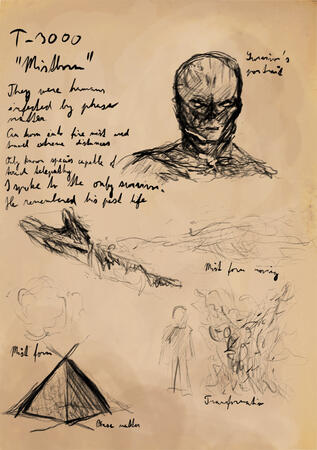 T-3000
"Mistborn"
They were humans
infected by phase
matter
Can turn into fine mist and
travel extreme distances
Only known species capable of
touch telepathy
I spoke to the only survivor.
He remembered his past life
Survivor's
portrait
Mist form moving
Mist form
Phase matter
Transformation